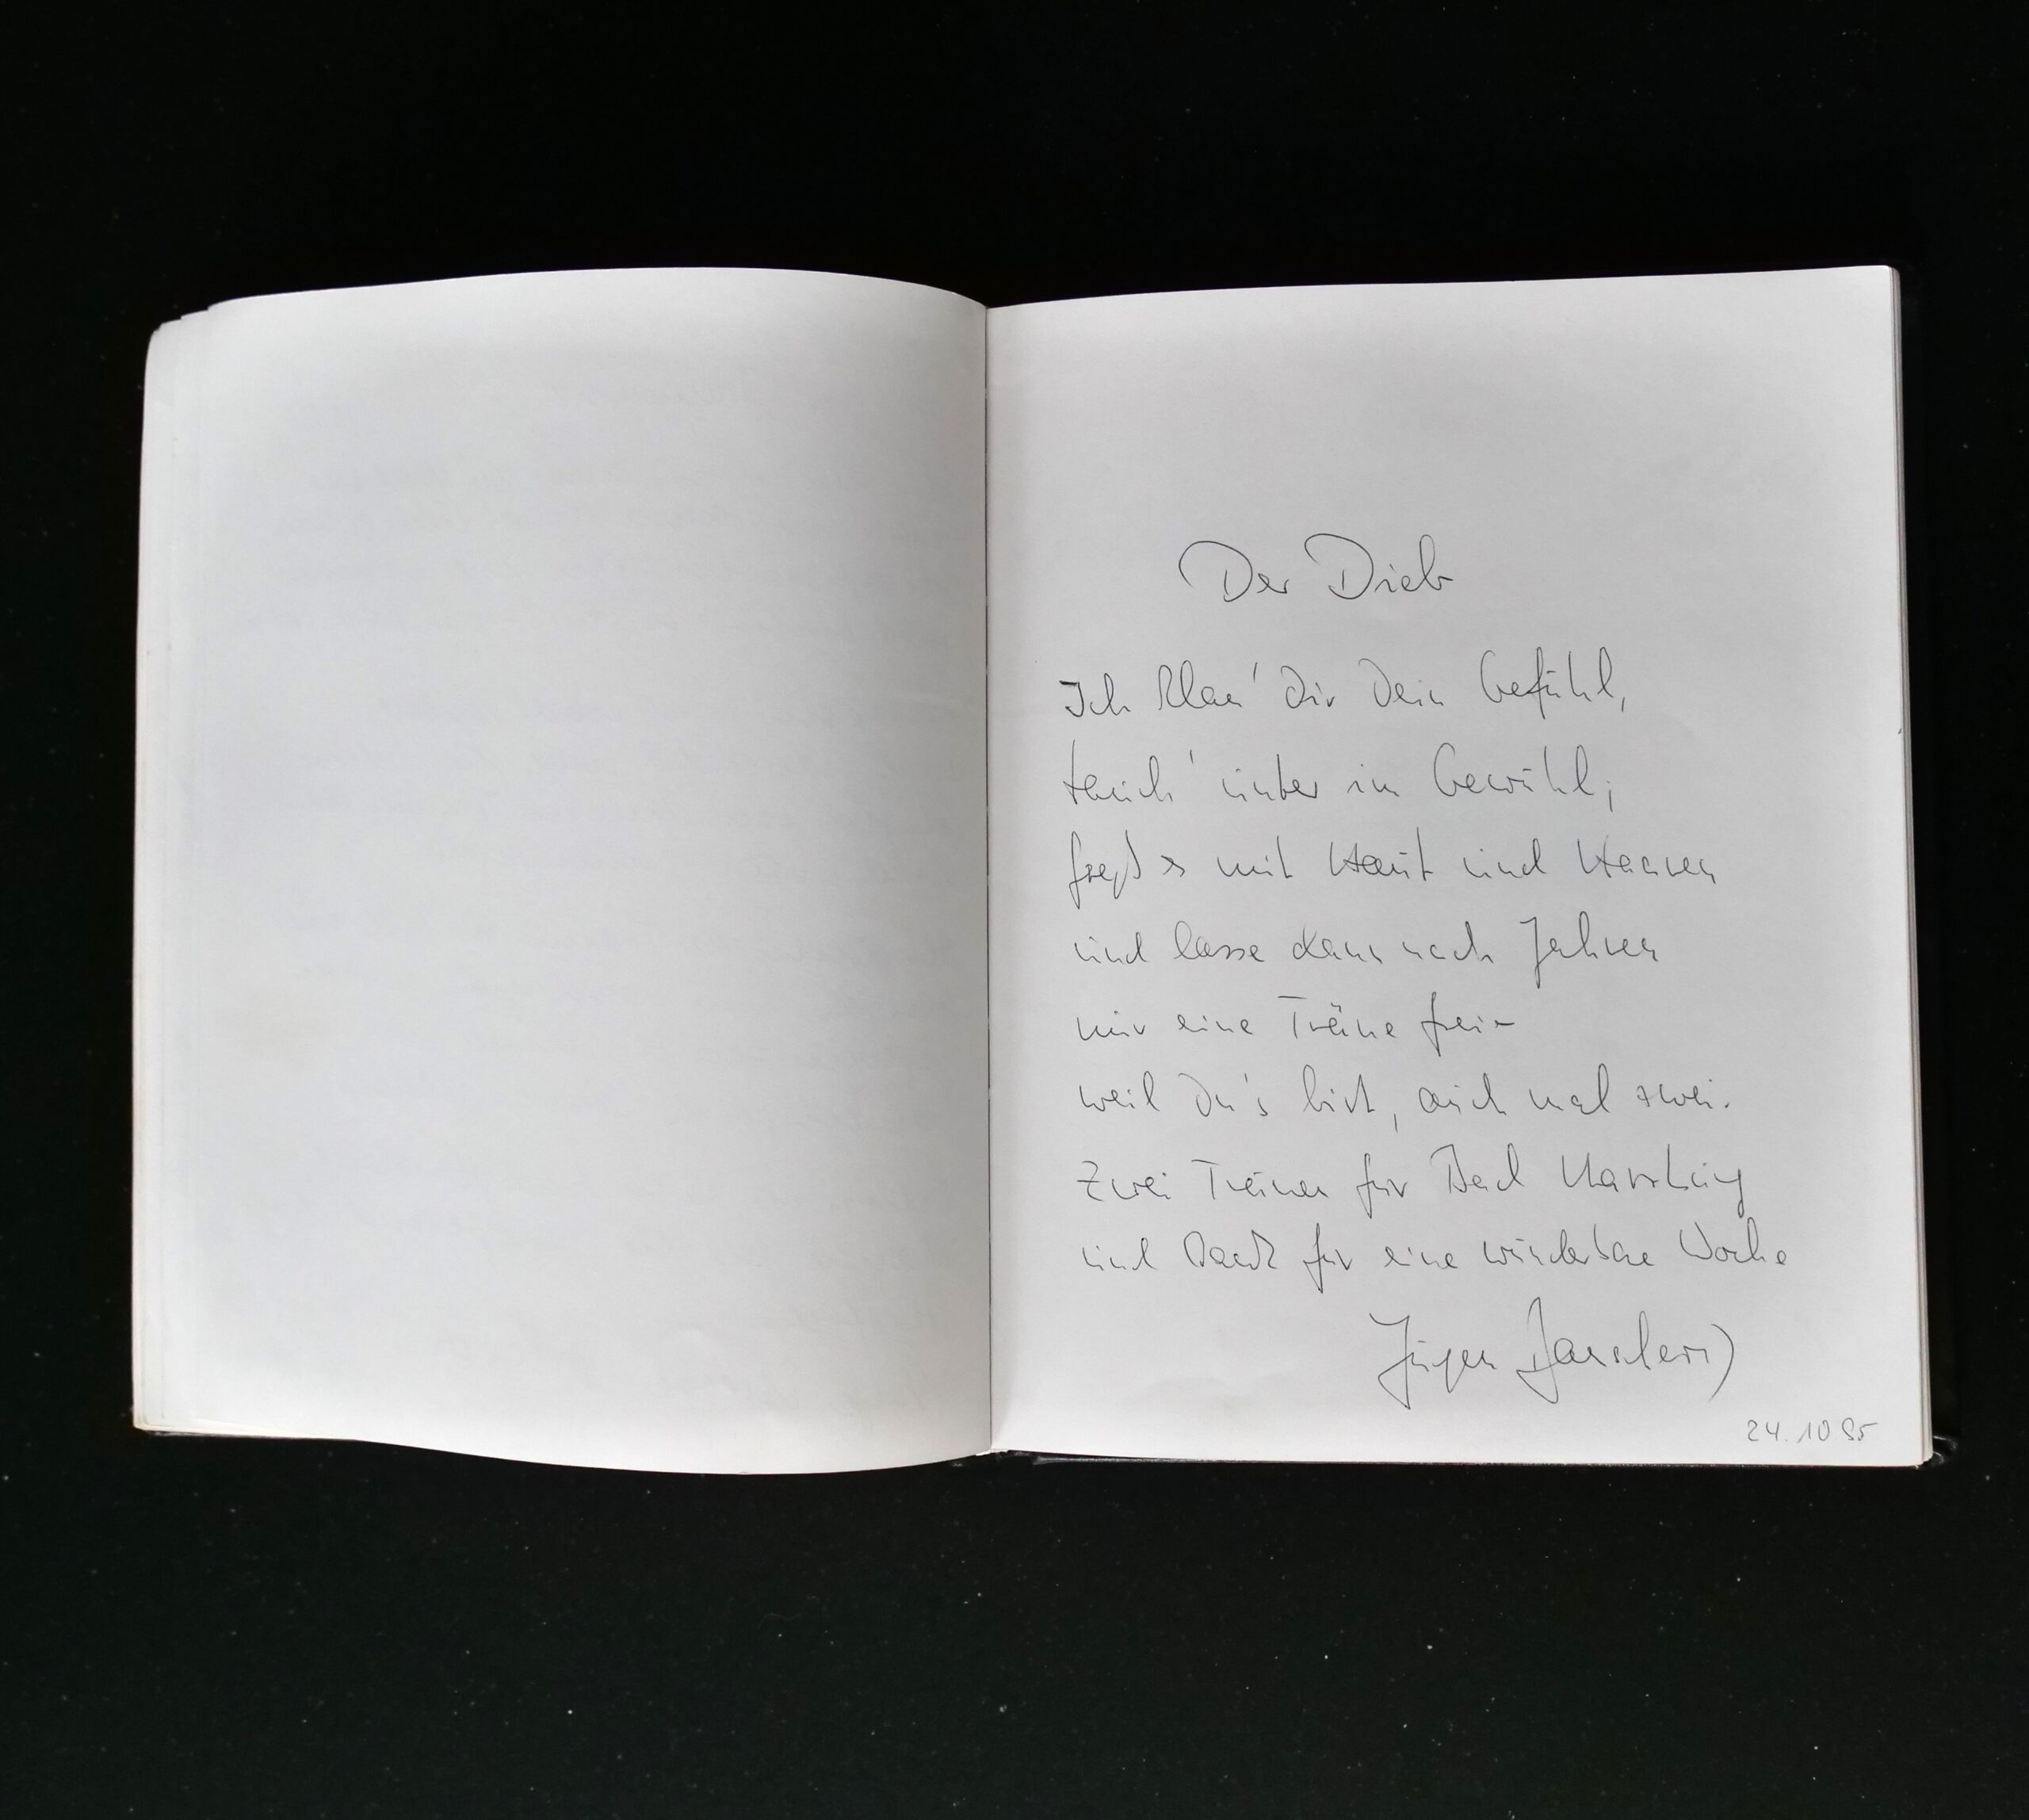 Der Dieb
Ich klau' Dir Dein Gefühl,
tauch' unter im Gewühl;
freß es mit Haut und Haaren
und lasse dann nach Jahren
mir eine Träne frei –
weil Du's bist, auch mal zwei.
Zwei Tränen für Bad Harzburg
und Dank für eine wunderbare Woche
Jürgen
24.10.95